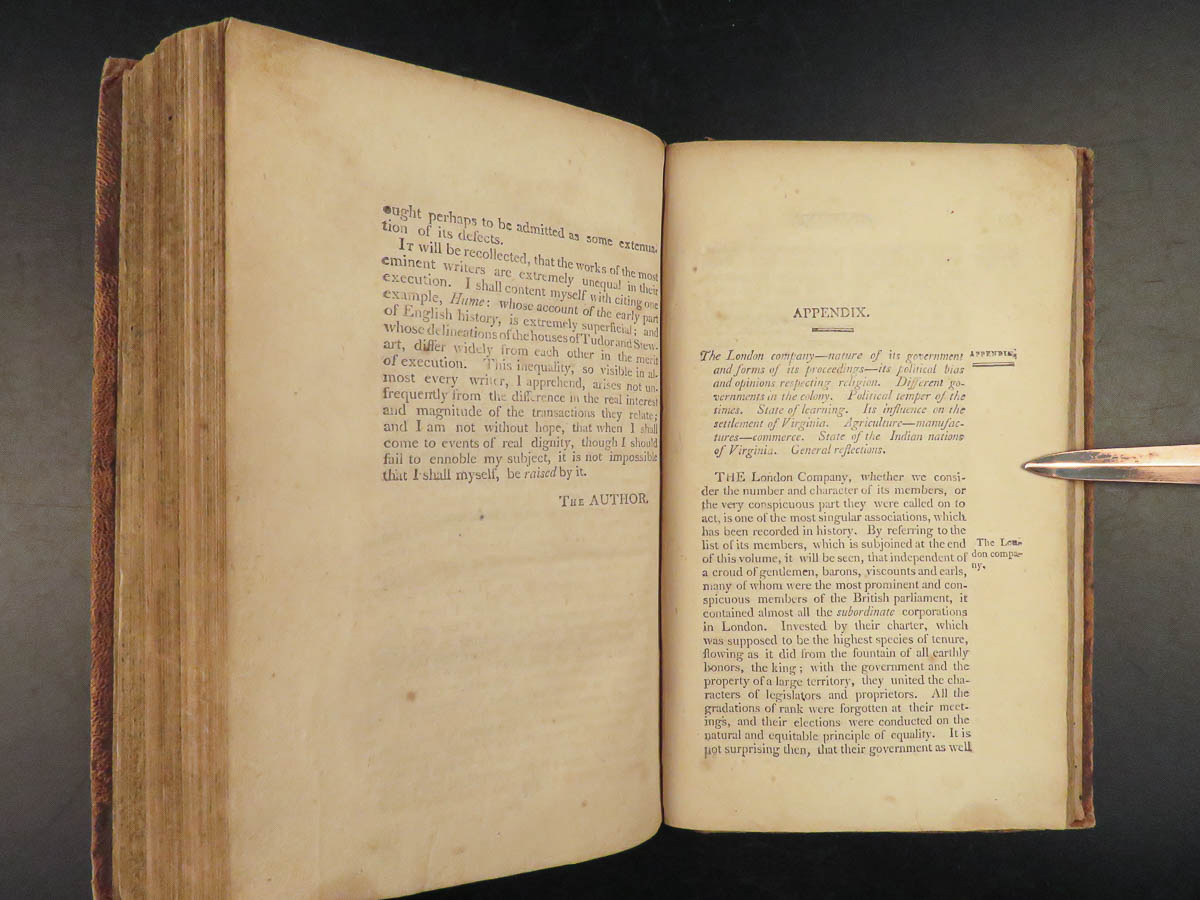 ought perhaps to be admitted as some extenua-
tion of its defects.
IT will be recollected, that the works of the most
eminent writers are extremely unequal in their
execution. I shall content myself with citing one
example, Hume: whose account of the early part
of English history, is extremely superficial; and
whose delineations of the houses of Tudor and Stew-
art, differ widely from each other in the merit
of execution. This inequality, so visible in al-
most every writer, I apprehend, arises not un-
frequently from the difference in the real interest
and magnitude of the transactions they relate;
and I am not without hope, that when I shall
come to events of real dignity, though I should
fail to ennoble my subject, it is not impossible
that I shall myself, be raised by it.
THE AUTHOR.
APPENDIX.
The London company—nature of its government
and forms of its proceedings—its political bias
and opinions respecting religion. Different go-
vernments in the colony. Political temper of the
times. State of learning. Its influence on the
settlement of Virginia. Agriculture—manufac-
tures—commerce. State of the Indian nations
of Virginia. General reflections.
APPENDIX.
THE London Company, whether we consi-
der the number and character of its members, or
the very conspicuous part they were called on to
act, is one of the most singular associations, which
has been recorded in history. By referring to the
list of its members, which is subjoined at the end
of this volume, it will be seen, that independent of
a croud of gentlemen, barons, viscounts and earls,
many of whom were the most prominent and con-
spicuous members of the British parliament, it
contained almost all the subordinate corporations
in London. Invested by their charter, which
was supposed to be the highest species of tenure,
flowing as it did from the fountain of all earthly
honors, the king; with the government and the
property of a large territory, they united the cha-
racters of legislators and proprietors. All the
gradations of rank were forgotten at their meet-
ings, and their elections were conducted on the
natural and equitable principle of equality. It is
not surprising then, that their government as well
The Lon-
don compa-
ny.